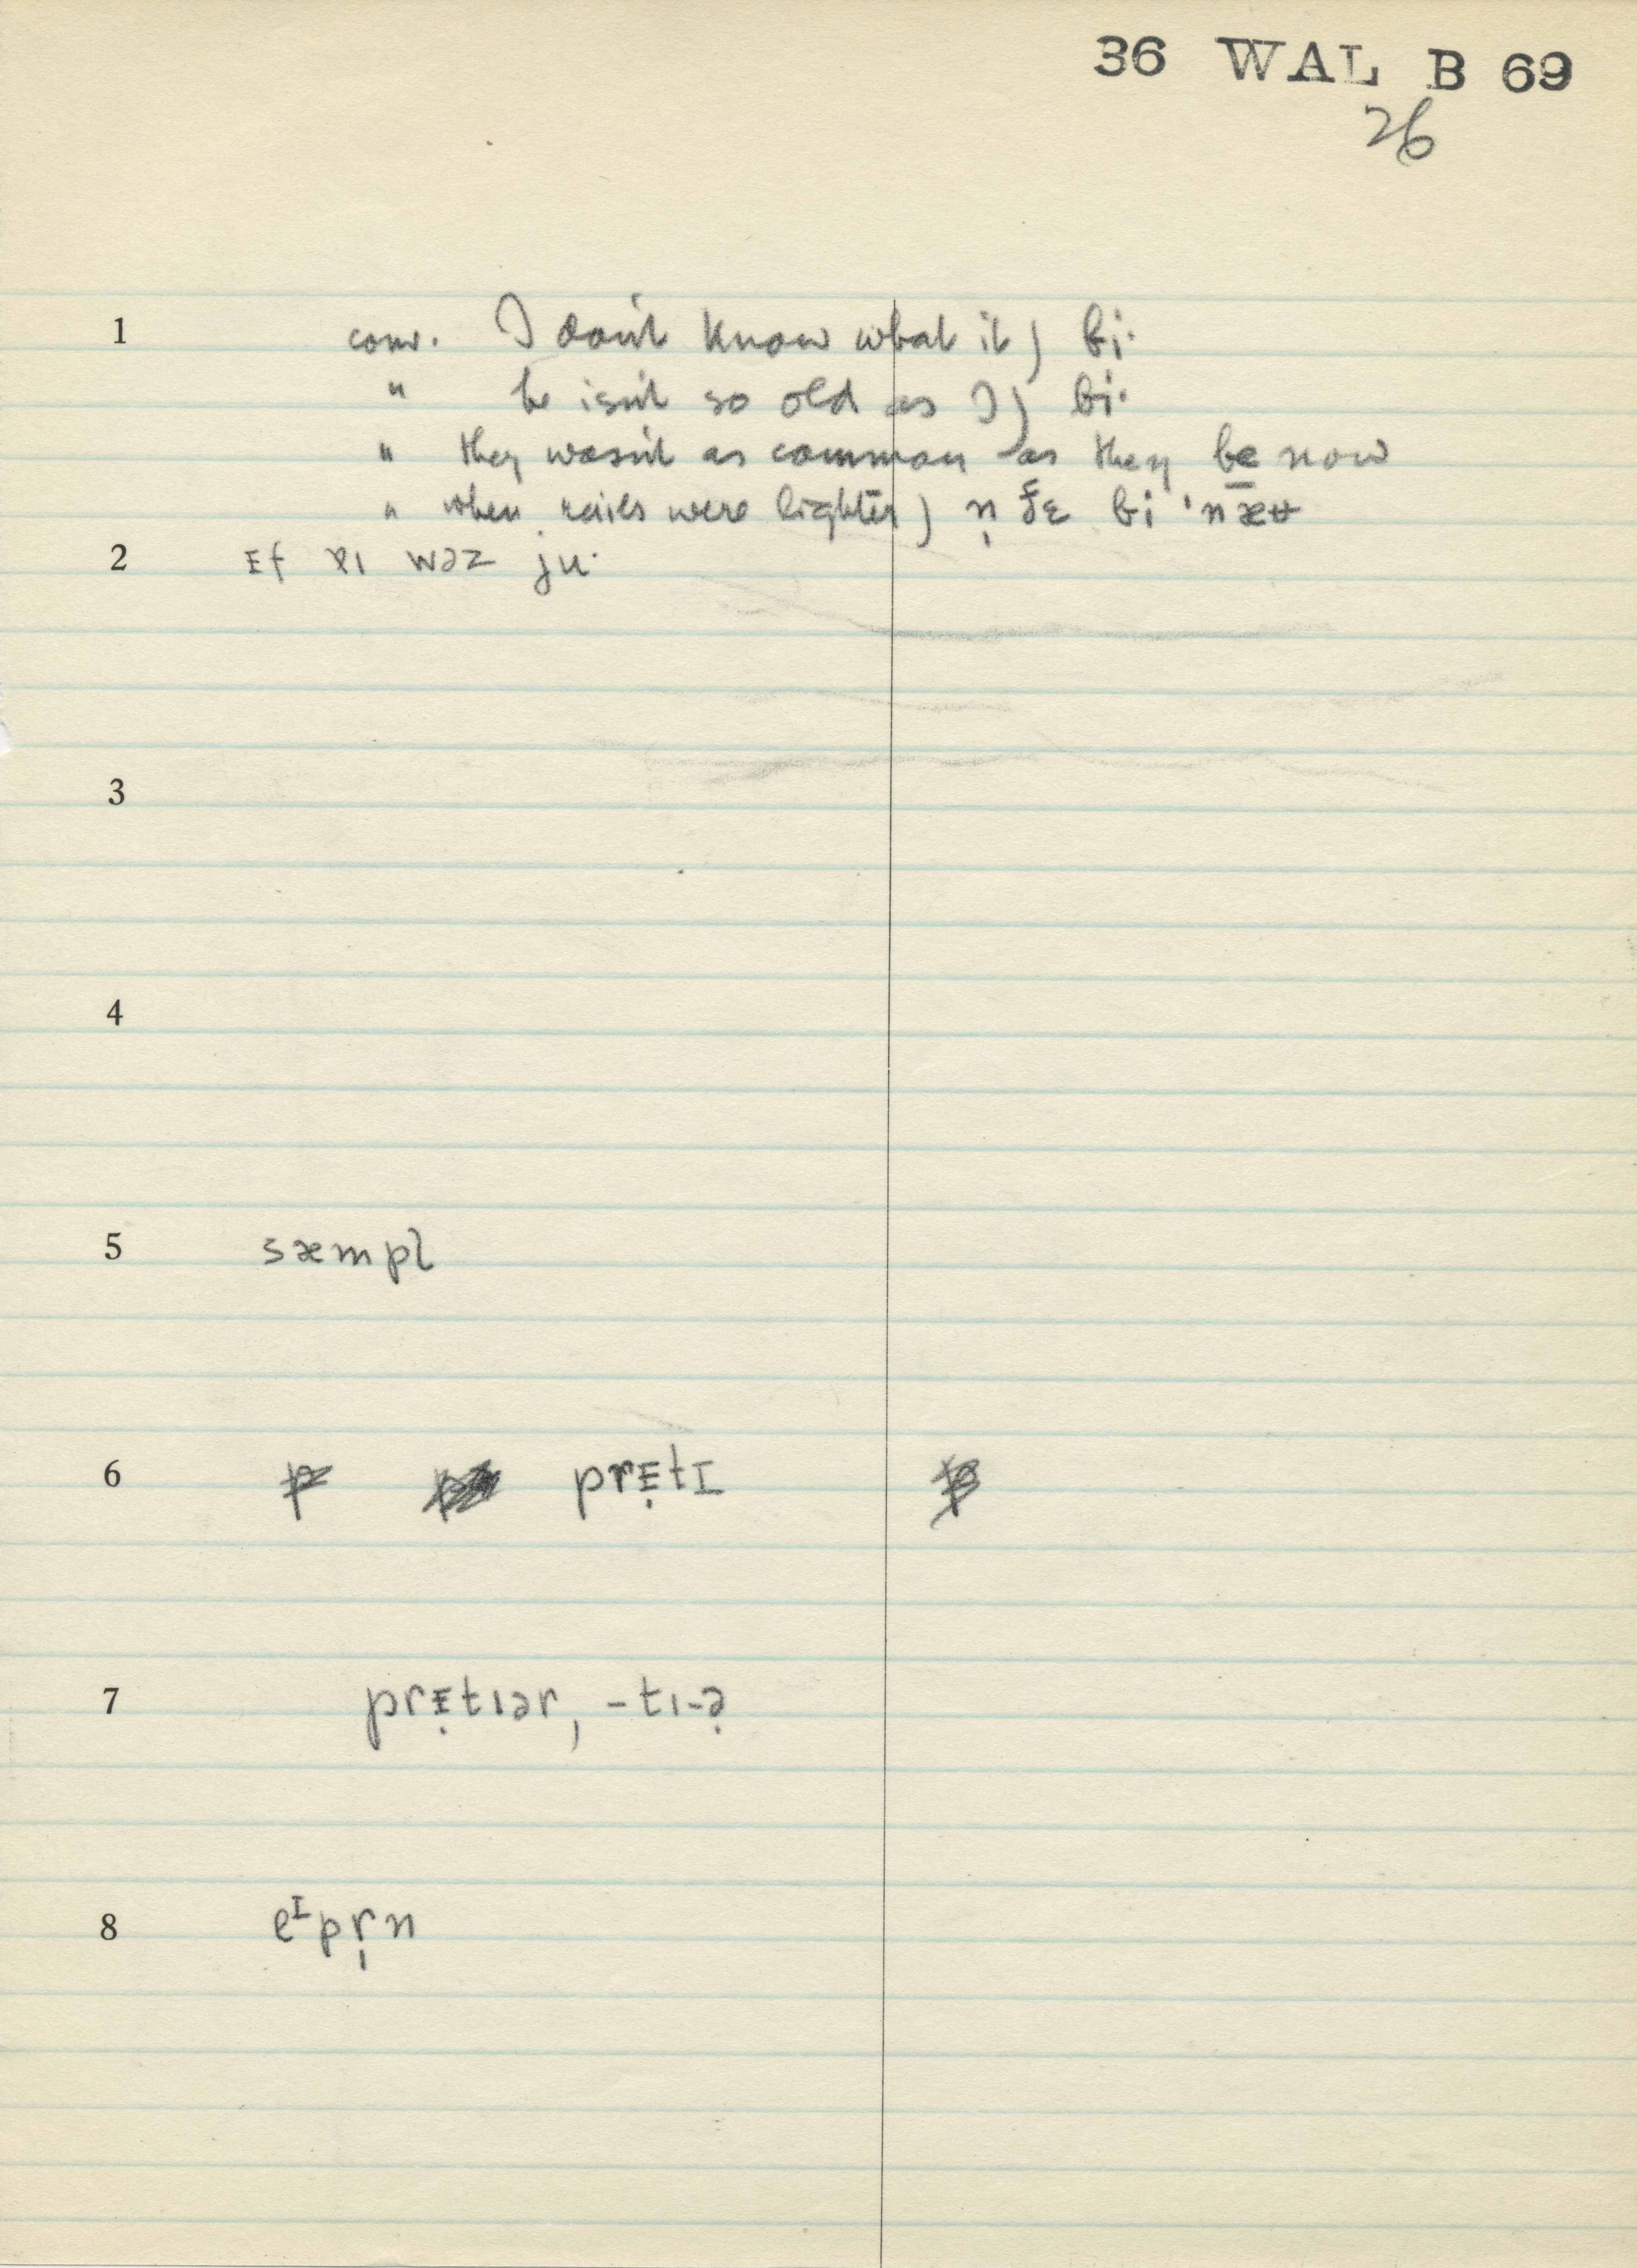 36 WAL B 69
26
1 conv. I don't know what it) bi·
" he isn't so old as I) bi·
" they wasn't as common as they be now
" when rails were lighter) n̩ ðɛ bi ˈnæʉ
2 ᴇf ɐɪ wəz ju·
3
4
5 sæmpl
6 prᴇ̣tɪ
7 prᴇ̣tɪər, -tɪ-ə̣
8 eᴵpr̩n